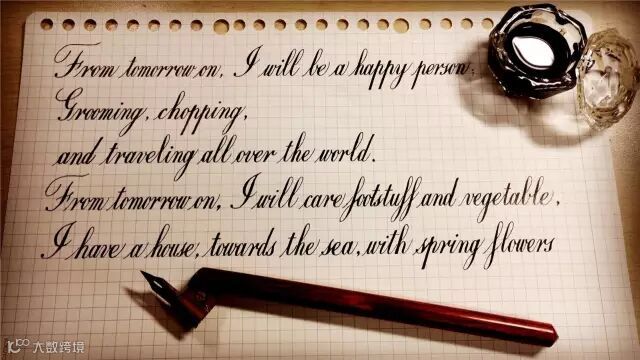 From tomorrow on, I will be a happy person;
Grooming, chopping,
and traveling all over the world.
From tomorrow on, I will care footstuff and vegetable,
I have a house, towards the sea, with spring flowers
大数跨境